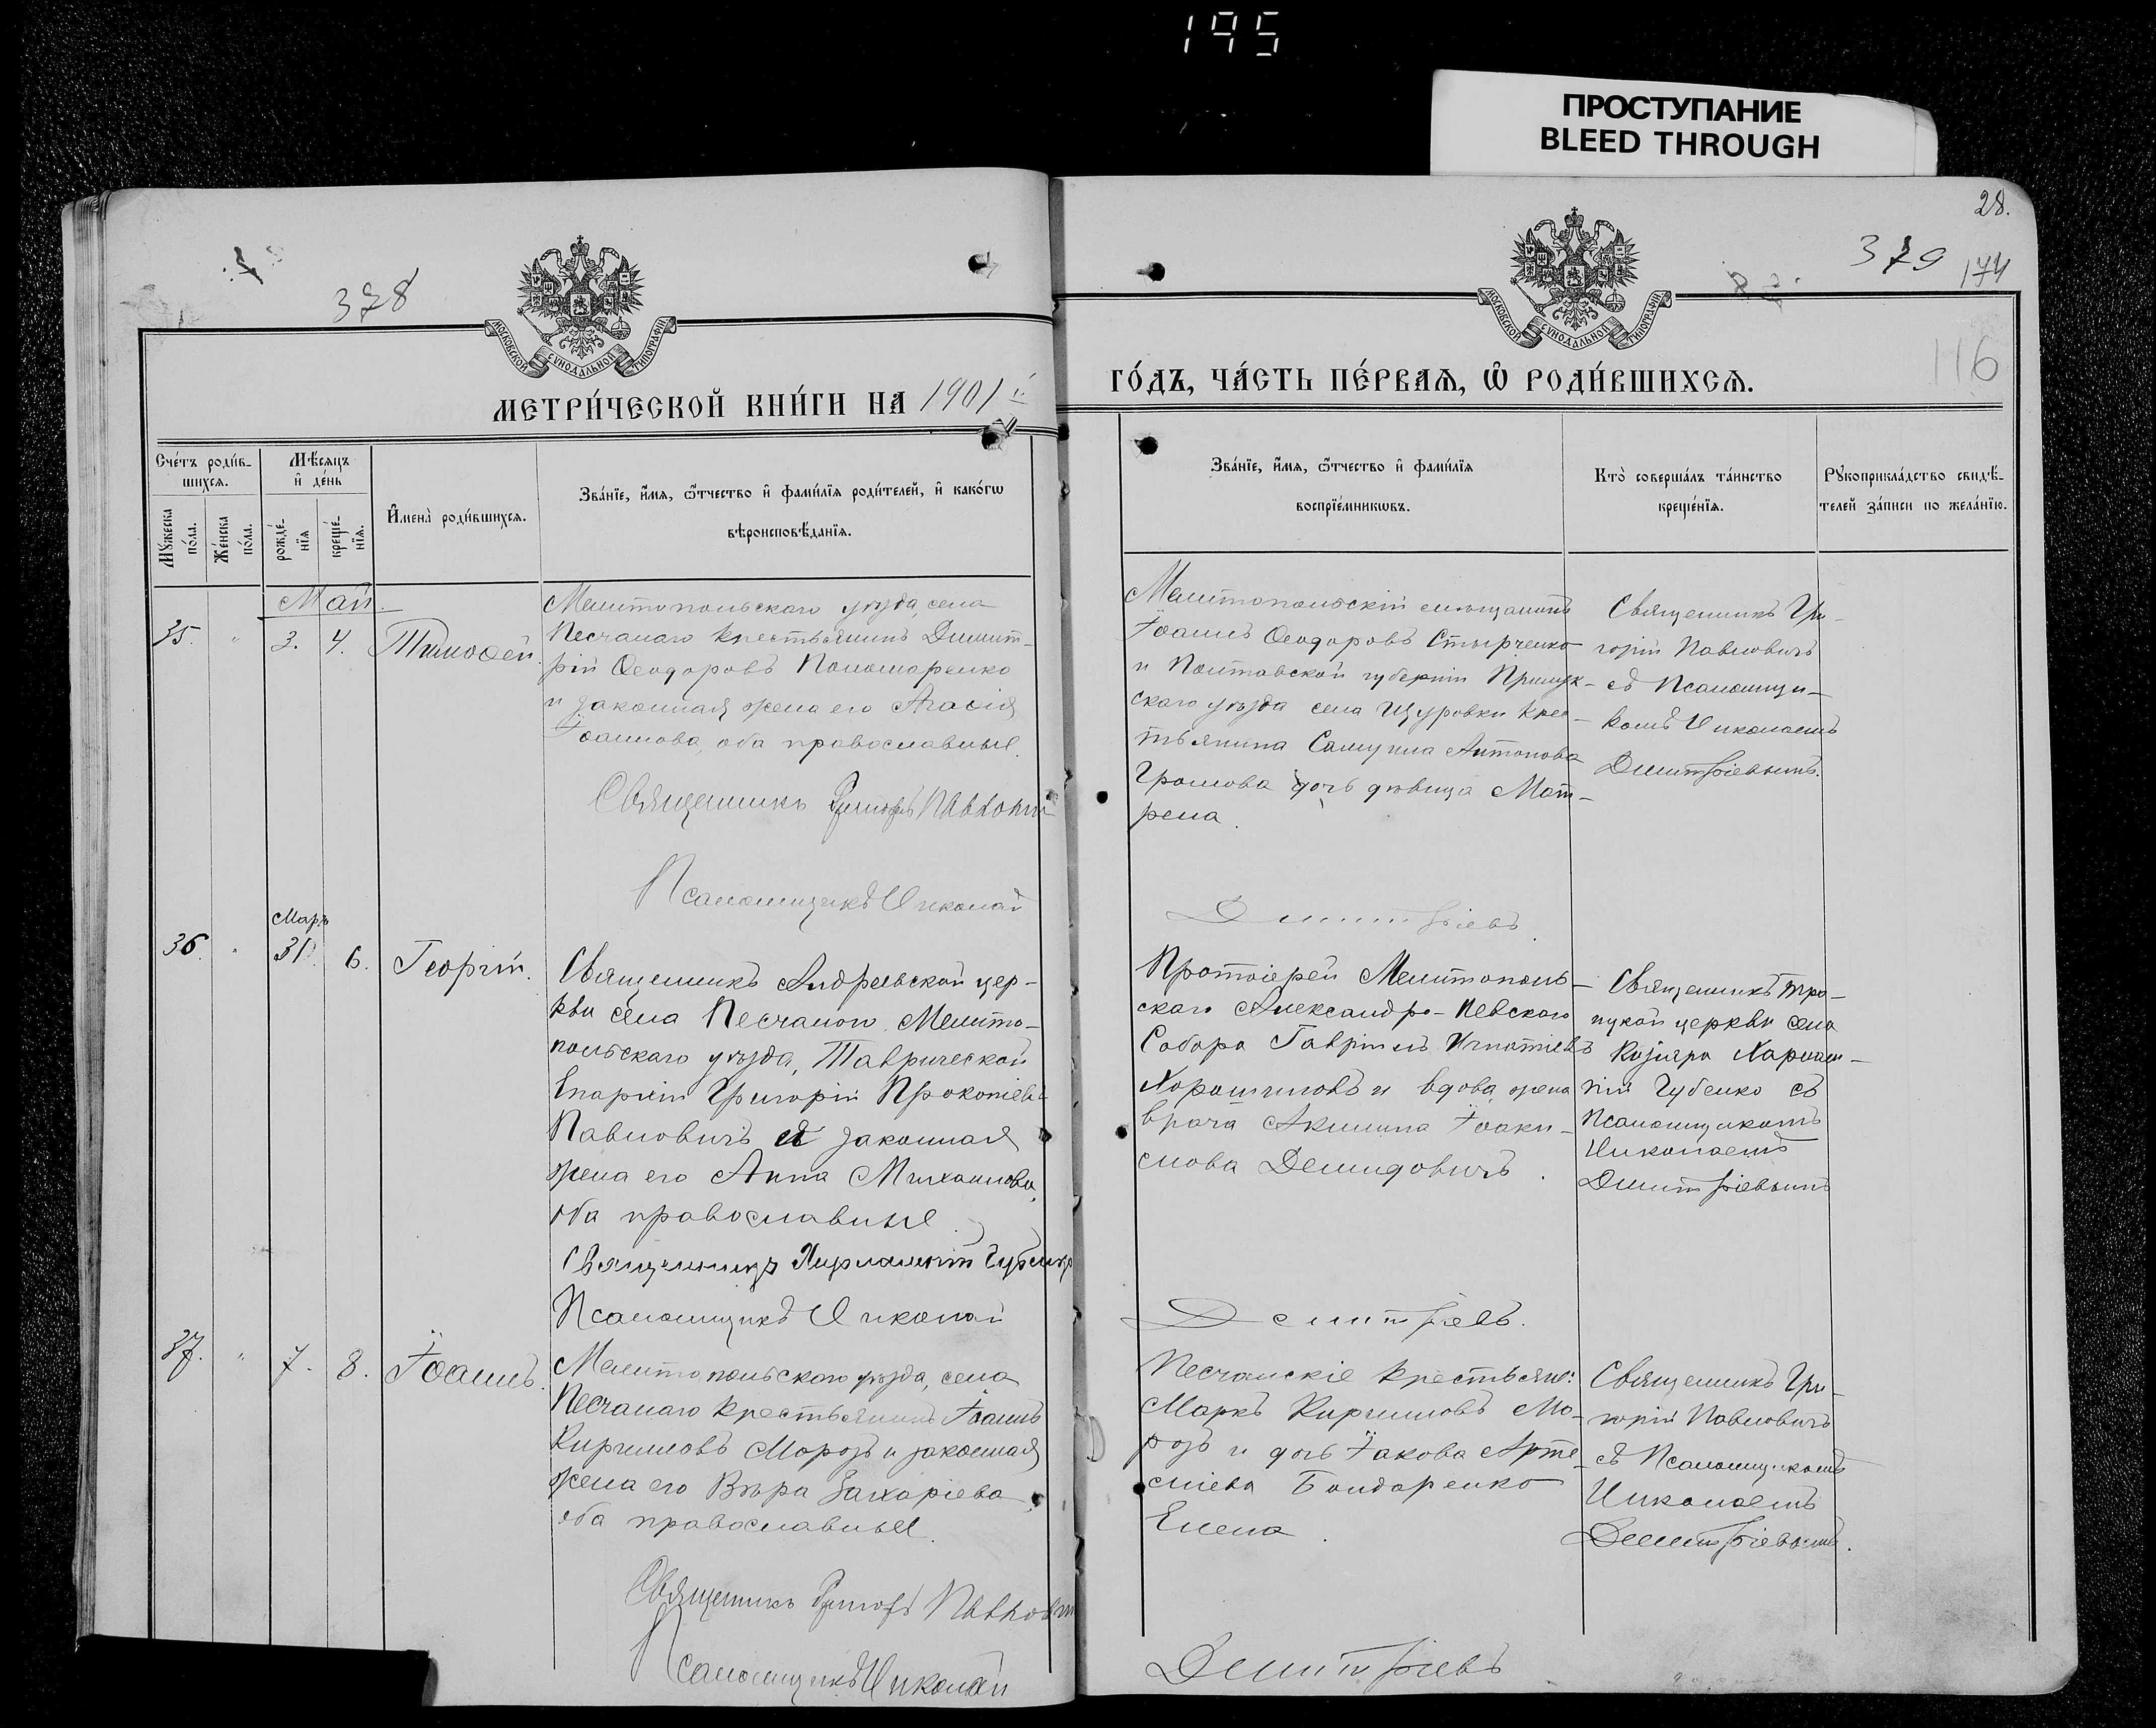 195
ПРОСТУПАНИЕ
BLEED THROUGH
28.
378
379
174
116
МОСКОВСКОЙ СѴНОДАЛЬНОЙ ТИПОГРАФІИ
МОСКОВСКОЙ СѴНОДАЛЬНОЙ ТИПОГРАФІИ
МЕТРИ́ЧЕСКОЙ КНИ́ГИ НА 1901й
ГО́ДЪ, ЧА́СТЬ ПЕ́РВАѦ, Ѡ҆ РОДИ́ВШИХСѦ.
Сче́тъ роди́в-
шихсѧ.
Мꙋ́жеска по́ла.
Же́нска по́ла.
Мѣ́сѧцъ и҆ де́нь
рожде́-нїѧ
креще́-нїѧ.
И҆мена̀ роди́вшихсѧ.
Зва́нїе, и҆́мѧ, ѻ҆́тчество и҆ фами́лїѧ роди́телей, и҆ како́гѡ
вѣроисповѣ́данїѧ.
Зва́нїе, и҆́мѧ, ѻ҆́тчество и҆ фами́лїѧ
воспрїе́мникѡвъ.
Кто̀ соверша́лъ та́инство
креще́нїѧ.
Рꙋкоприкла́дство свидѣ́-
телей за́писи по жела́нїю.
Май.
35. " 3. 4. Тимоѳей.
Мелитопольскаго уѣзда, села
Песчанаго крестьянинъ Димит-
рій Ѳеодоровъ Пономаренко
и законная жена его Агаѳія
Іоаннова, оба православные.
Священникъ Григорій Павлович
Псаломщикъ Николай
Мелитопольскій мѣщанинъ
Іоаннъ Ѳеодоровъ Стырченко
и Полтавской губерніи Прилук-
скаго уѣзда села Щуровки крес-
тьянина Самуила Антонова
Громова дочь дѣвица Мат-
рена.
Димитріевъ.
Священникъ Гри-
горій Павловичъ
съ Псаломщи-
комъ Николаемъ
Димитріевымъ.
Мартъ
36. " 31. 6. Георгій.
Священникъ Андреевской цер-
кви села Песчаного, Мелито-
польскаго уѣзда, Таврической
Епархіи Григорій Прокопіевъ
Павловичъ и законная
жена его Анна Михаилова,
оба православные.
Священникъ Харлампій Губенко
Псаломщикъ Николай
Протоіерей Мелитополь-
скаго Александро-Невскаго
Собора Гавріилъ Игнатіевъ
Хорошиловъ и вдова, жена
врача Акилина Іоаки-
мова Демидовичъ.
Димитріевъ.
Священникъ Тро-
ицкой церкви села
Харлам-
пій Губенко съ
Псаломщикомъ
Николаемъ
Димитріевымъ
37. " 7. 8. Іоаннъ.
Мелитопольскаго уѣзда, села
Песчанаго крестьянинъ Іоаннъ
Кирилловъ Морозъ и законная
жена его Вѣра Захаріева,
оба православные.
Священникъ Григорій Павлович
Псаломщикъ Николай
Песчанскіе крестьяне:
Маркъ Кирилловъ Мо-
розъ и дочь Іакова Арте-
міева Бондаренко
Елена.
Димитріевъ
Священникъ Гри-
горій Павловичъ
съ Псаломщикомъ
Николаемъ
Димитріевымъ.